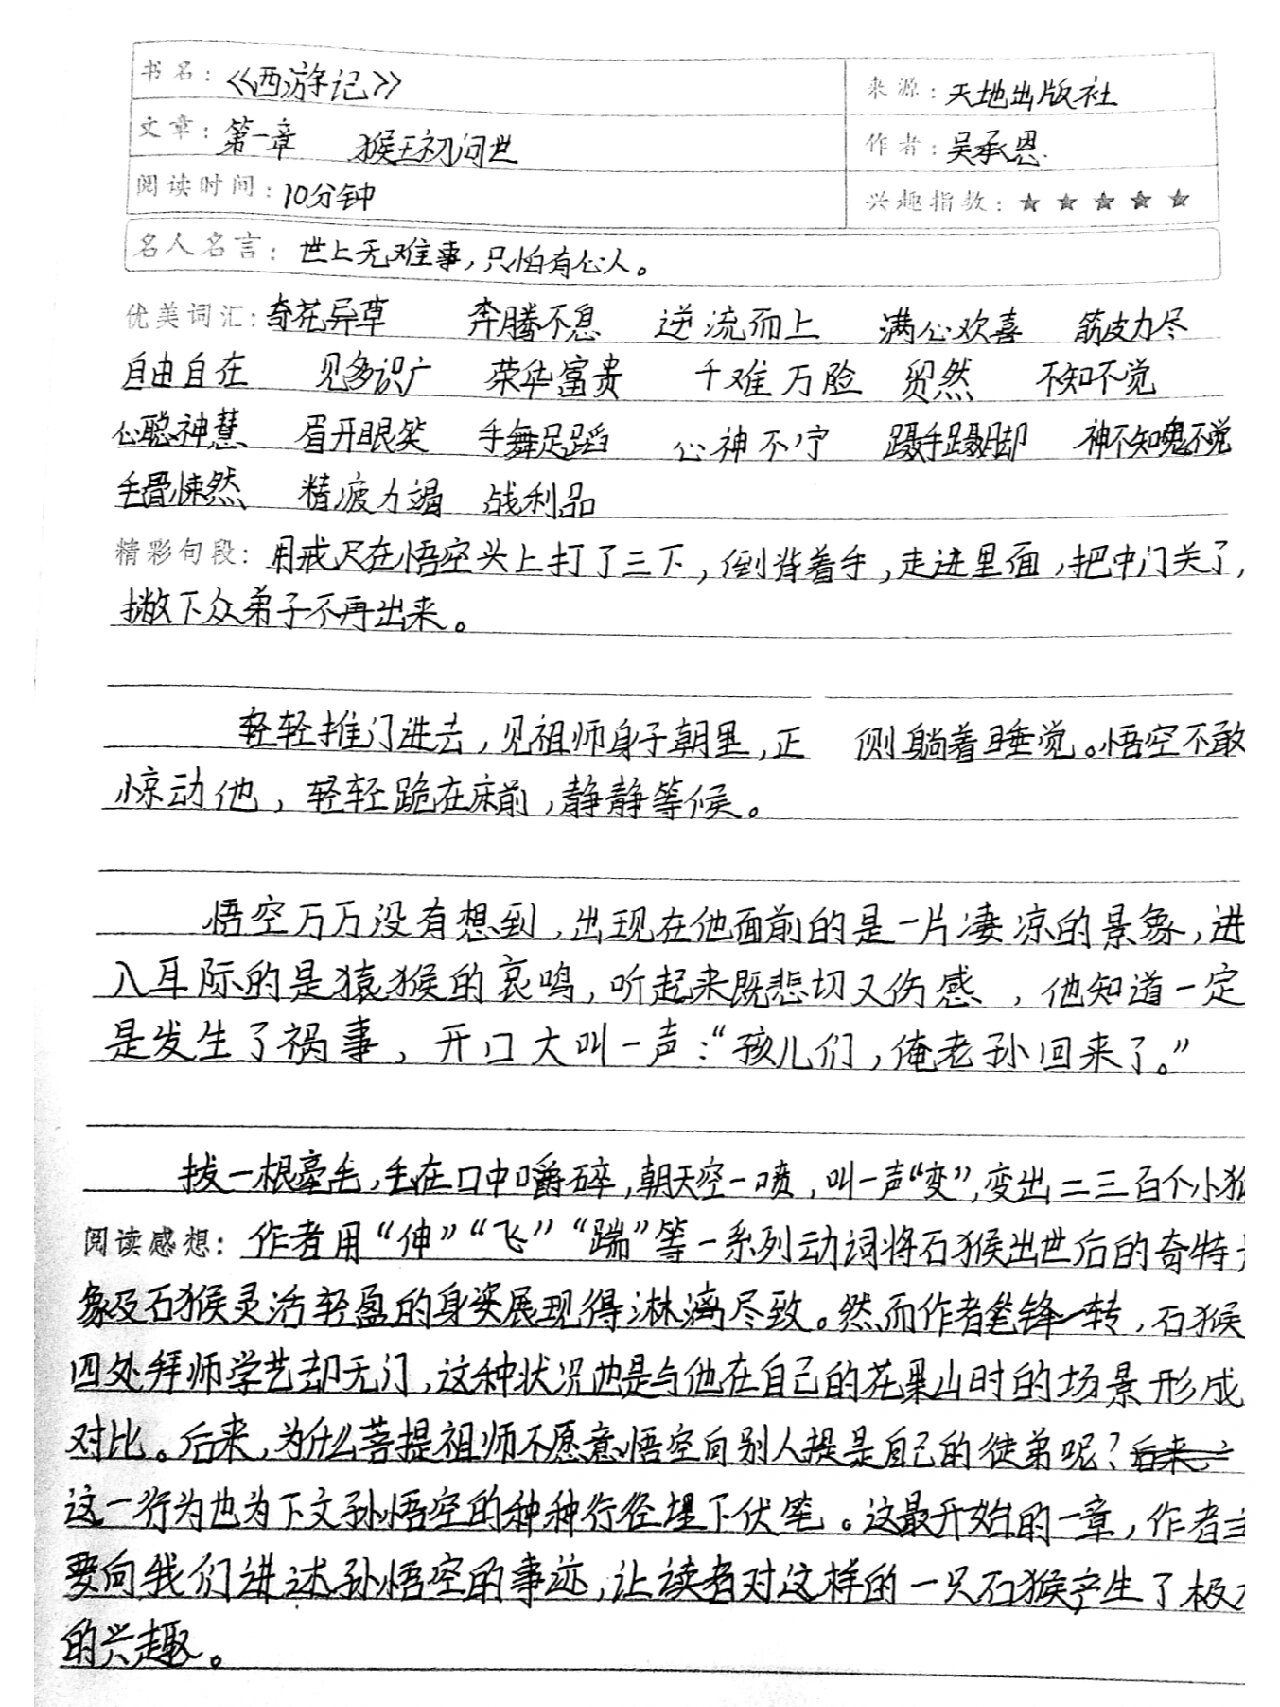 书名：《西游记》 来源：天地出版社
文章：第一章 猴王初问世 作者：吴承恩.
阅读时间：10分钟 兴趣指数：★ ★ ★ ★ ★
名人名言：世上无难事，只怕有心人。
优美词汇：奇花异草 奔腾不息 逆流而上 满心欢喜 筋皮力尽
自由自在 见多识广 荣华富贵 千难万险 贸然 不知不觉
心聪神慧 眉开眼笑 手舞足蹈 心神不宁 蹑手蹑脚 神不知鬼不觉
毛骨悚然 精疲力竭 战利品
精彩句段：用戒尺在悟空头上打了三下，倒背着手，走进里面，把中门关了，
撇下众弟子不再出来。
轻轻推门进去，见祖师身子朝里，正 侧躺着睡觉。悟空不敢
惊动他，轻轻跪在床前，静静等候。
悟空万万没有想到，出现在他面前的是一片凄凉的景象，进
入耳际的是猿猴的哀鸣，听起来既悲切又伤感，他知道一定
是发生了祸事，开口大叫一声：“孩儿们，俺老孙回来了。”
拔一根毫毛，丢在口中嚼碎，朝天空一喷，叫一声“变”，变出二三百个小猴
阅读感想：作者用“伸”“飞”“踹”等一系列动词将石猴出世后的奇特
象及石猴灵活轻盈的身姿展现得淋漓尽致。然而作者笔锋一转，石猴
四处拜师学艺却无门，这种状况也是与他在自己的花果山时的场景形成
对比。后来，为什么菩提祖师不愿意悟空向别人提是自己的徒弟呢？后来，
这一行为也为下文孙悟空的种种行径埋下伏笔。这最开始的一章，作者主
要向我们讲述孙悟空的事迹，让读者对这样的一只石猴产生了极大
的兴趣。